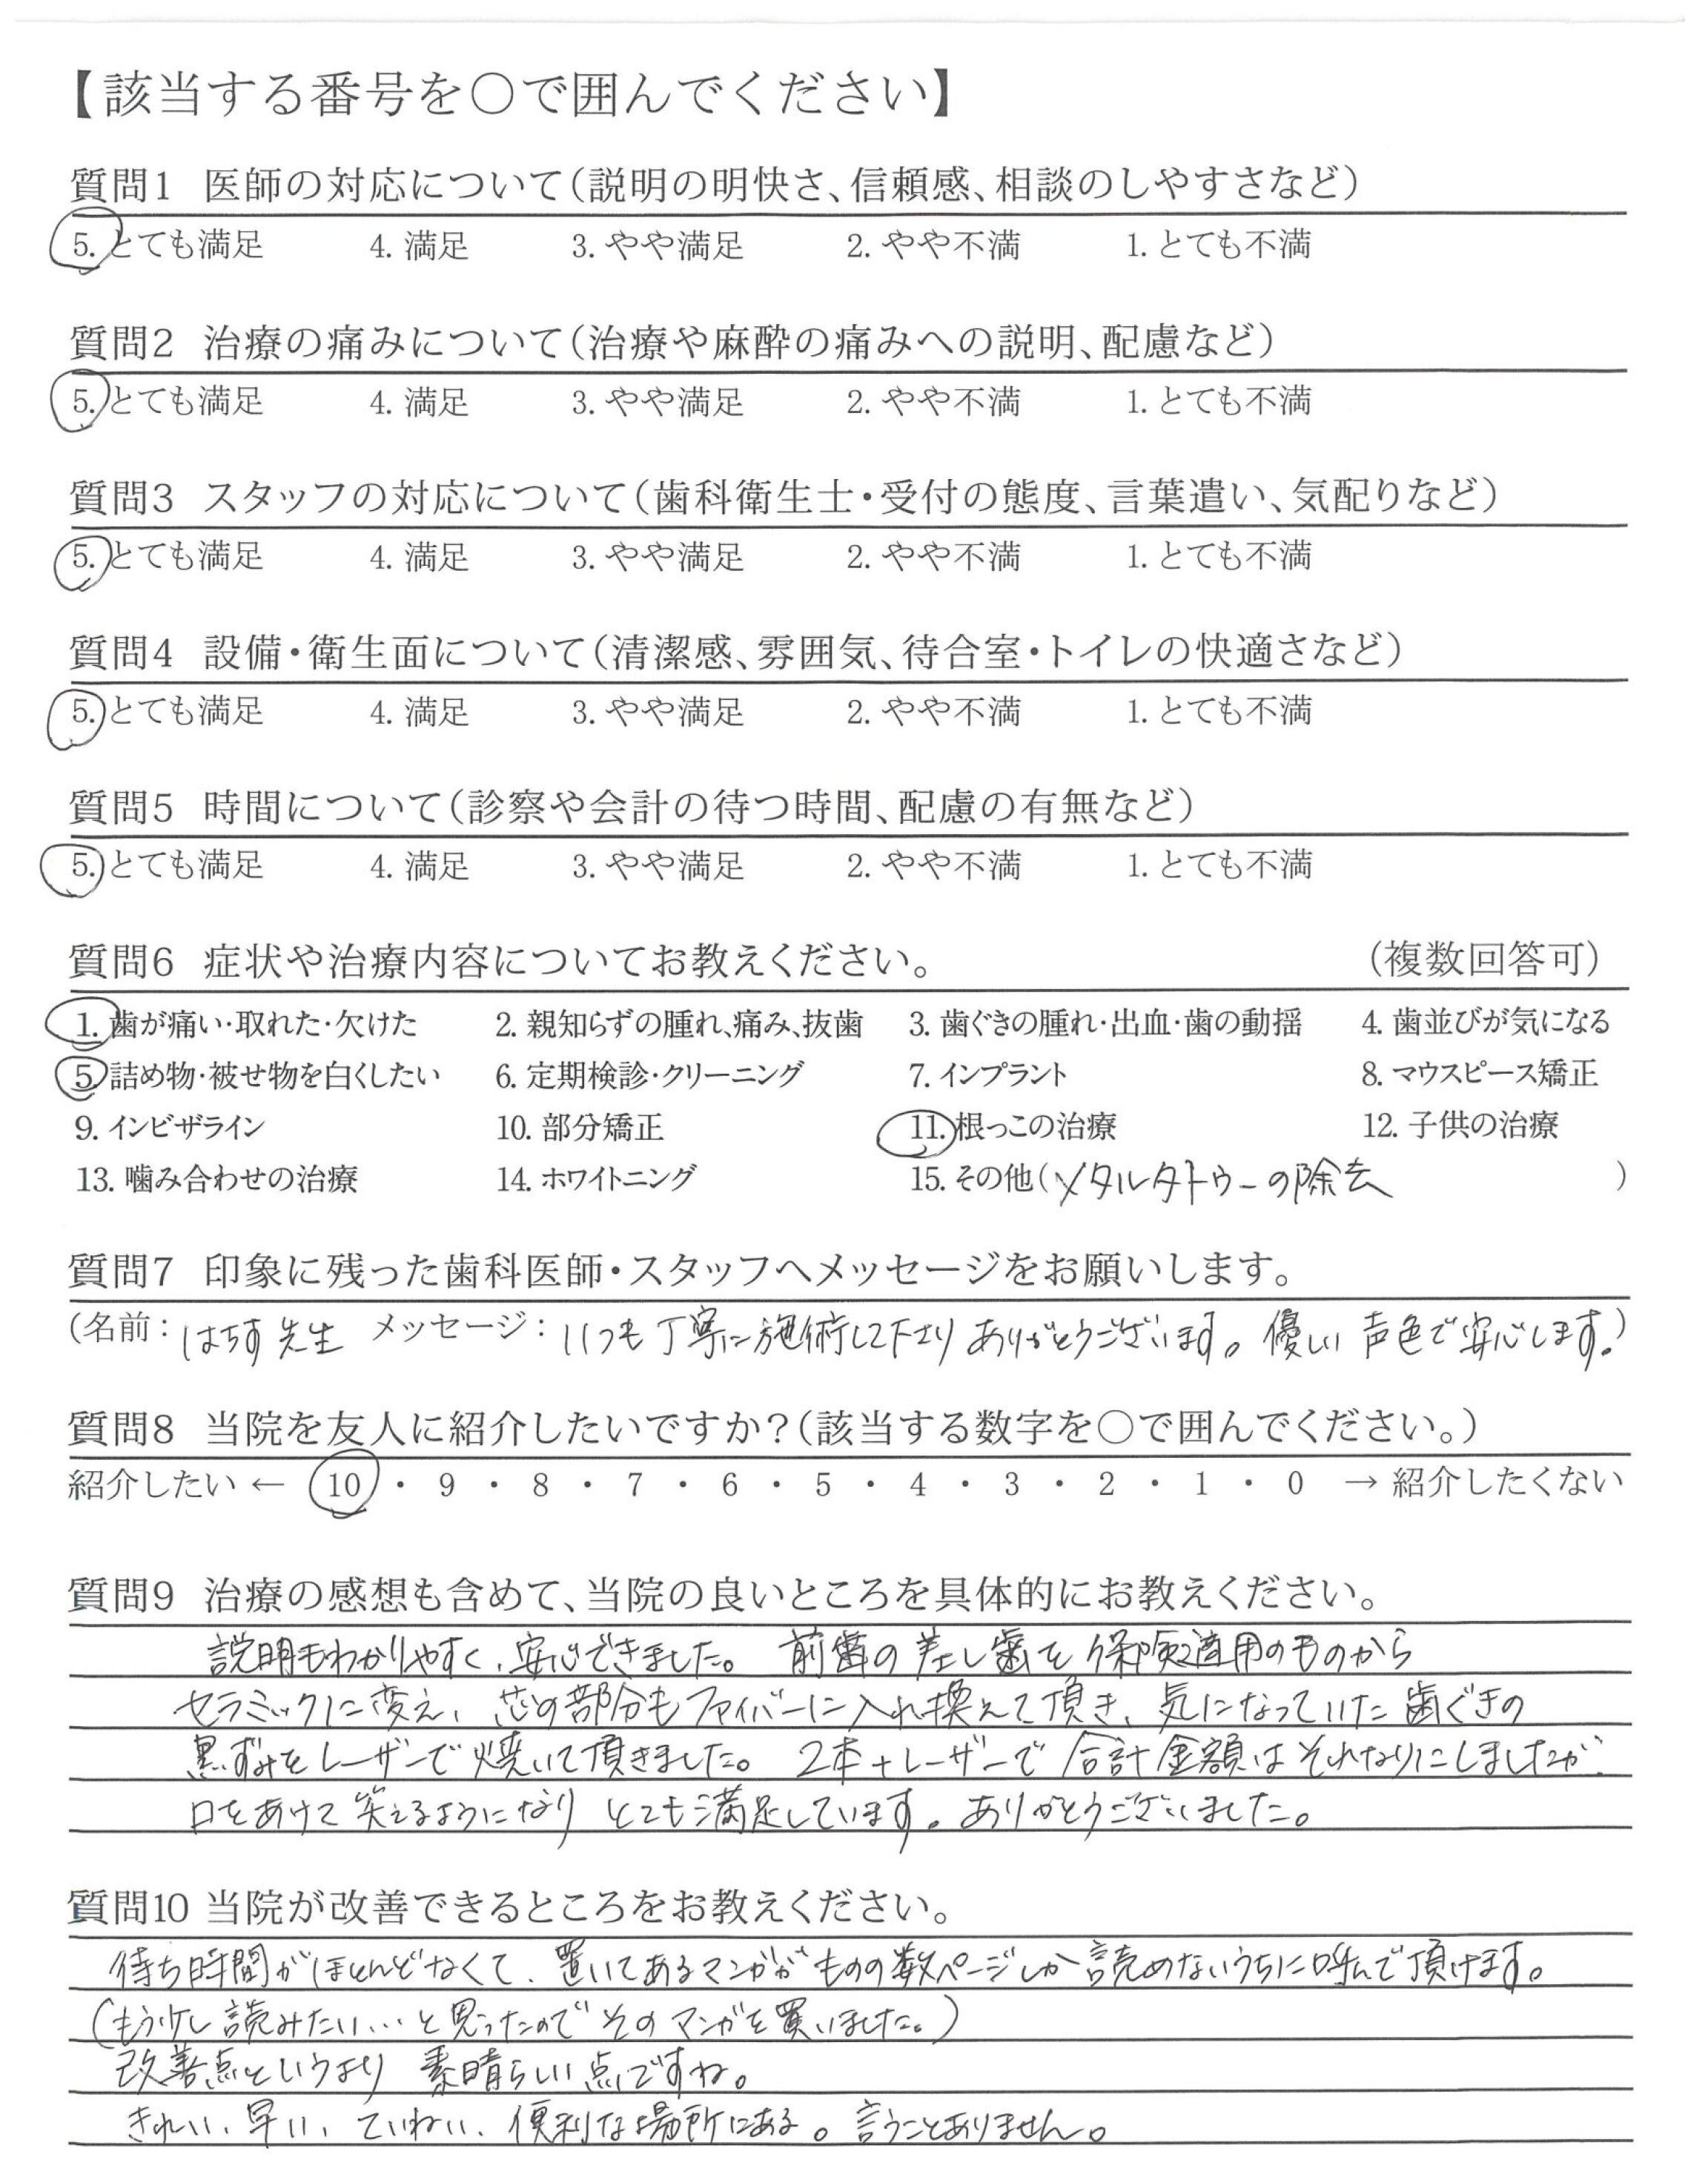 【該当する番号を○で囲んでください】
質問1 医師の対応について(説明の明快さ、信頼感、相談のしやすさなど)
5. とても満足 4. 満足 3. やや満足 2. やや不満 1. とても不満
質問2 治療の痛みについて(治療や麻酔の痛みへの説明、配慮など)
5. とても満足 4. 満足 3. やや満足 2. やや不満 1. とても不満
質問3 スタッフの対応について(歯科衛生士・受付の態度、言葉遣い、気配りなど)
5. とても満足 4. 満足 3. やや満足 2. やや不満 1. とても不満
質問4 設備・衛生面について(清潔感、雰囲気、待合室・トイレの快適さなど)
5. とても満足 4. 満足 3. やや満足 2. やや不満 1. とても不満
質問5 時間について(診察や会計の待つ時間、配慮の有無など)
5. とても満足 4. 満足 3. やや満足 2. やや不満 1. とても不満
質問6 症状や治療内容についてお教えください。 (複数回答可)
1. 歯が痛い・取れた・欠けた 2. 親知らずの腫れ、痛み、抜歯 3. 歯ぐきの腫れ・出血・歯の動揺 4. 歯並びが気になる
5. 詰め物・被せ物を白くしたい 6. 定期検診・クリーニング 7. インプラント 8. マウスピース矯正
9. インビザライン 10. 部分矯正 11. 根っこの治療 12. 子供の治療
13. 噛み合わせの治療 14. ホワイトニング 15. その他(メタルタトゥーの除去 )
質問7 印象に残った歯科医師・スタッフへメッセージをお願いします。
(名前:はちす先生 メッセージ:いつも丁寧に施術して下さりありがとうございます。優しい声色で安心します。)
質問8 当院を友人に紹介したいですか?(該当する数字を○で囲んでください。)
紹介したい ← 10 ・ 9 ・ 8 ・ 7 ・ 6 ・ 5 ・ 4 ・ 3 ・ 2 ・ 1 ・ 0 → 紹介したくない
質問9 治療の感想も含めて、当院の良いところを具体的にお教えください。
説明もわかりやすく、安心できました。前歯の差し歯を保険適用のものから
セラミックに変え、芯の部分もファイバーに入れ換えて頂き、気になっていた歯ぐきの
黒ずみをレーザーで焼いて頂きました。2本+レーザーで合計金額はそれなりにしましたが、
口をあけて笑えるようになりとても満足しています。ありがとうございました。
質問10 当院が改善できるところをお教えください。
待ち時間がほとんどなくて、置いてあるマンガがものの数ページしか読めないうちに呼んで頂けます。
(もう少し読みたい…と思ったのでそのマンガを買いました。)
改善点というより素晴らしい点ですね。
きれい、早い、ていねい、便利な場所にある。言うことありません。